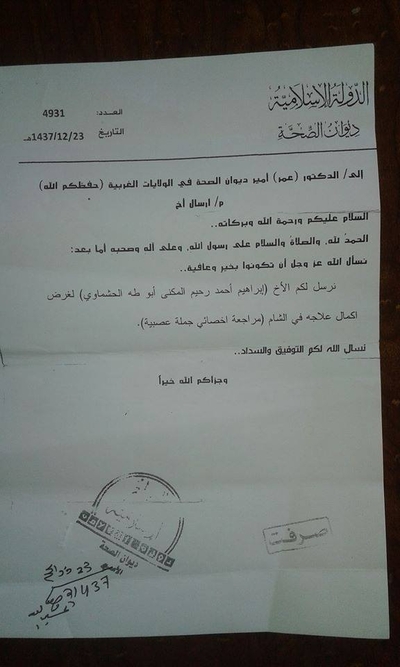 الدولة الإسلامية
ديوان الصحة
العدد: 4931
التاريخ 1437/12/23هـ
إلى/ الدكتور (عمر) أمير ديوان الصحة في الولايات الغربية (حفظكم الله)
م/ ارسال أخ
السلام عليكم ورحمة الله وبركاته..
الحمدُ لله، والصلاةُ والسلام على رسول الله، وعلى آله وصحبه أما بعد:
نسأل الله عز وجل أن تكونوا بخير وعافية..
نرسل لكم الأخ (إبراهيم أحمد رحيم المكنى أبو طه الحشماوي) لغرض
اكمال علاجه في الشام (مراجعة اخصائي جملة عصبية).
نسال الله لكم التوفيق والسداد..
وجزاكم الله خيراً
الإسلامية
ديوان الصحة
صرفت
23
1437